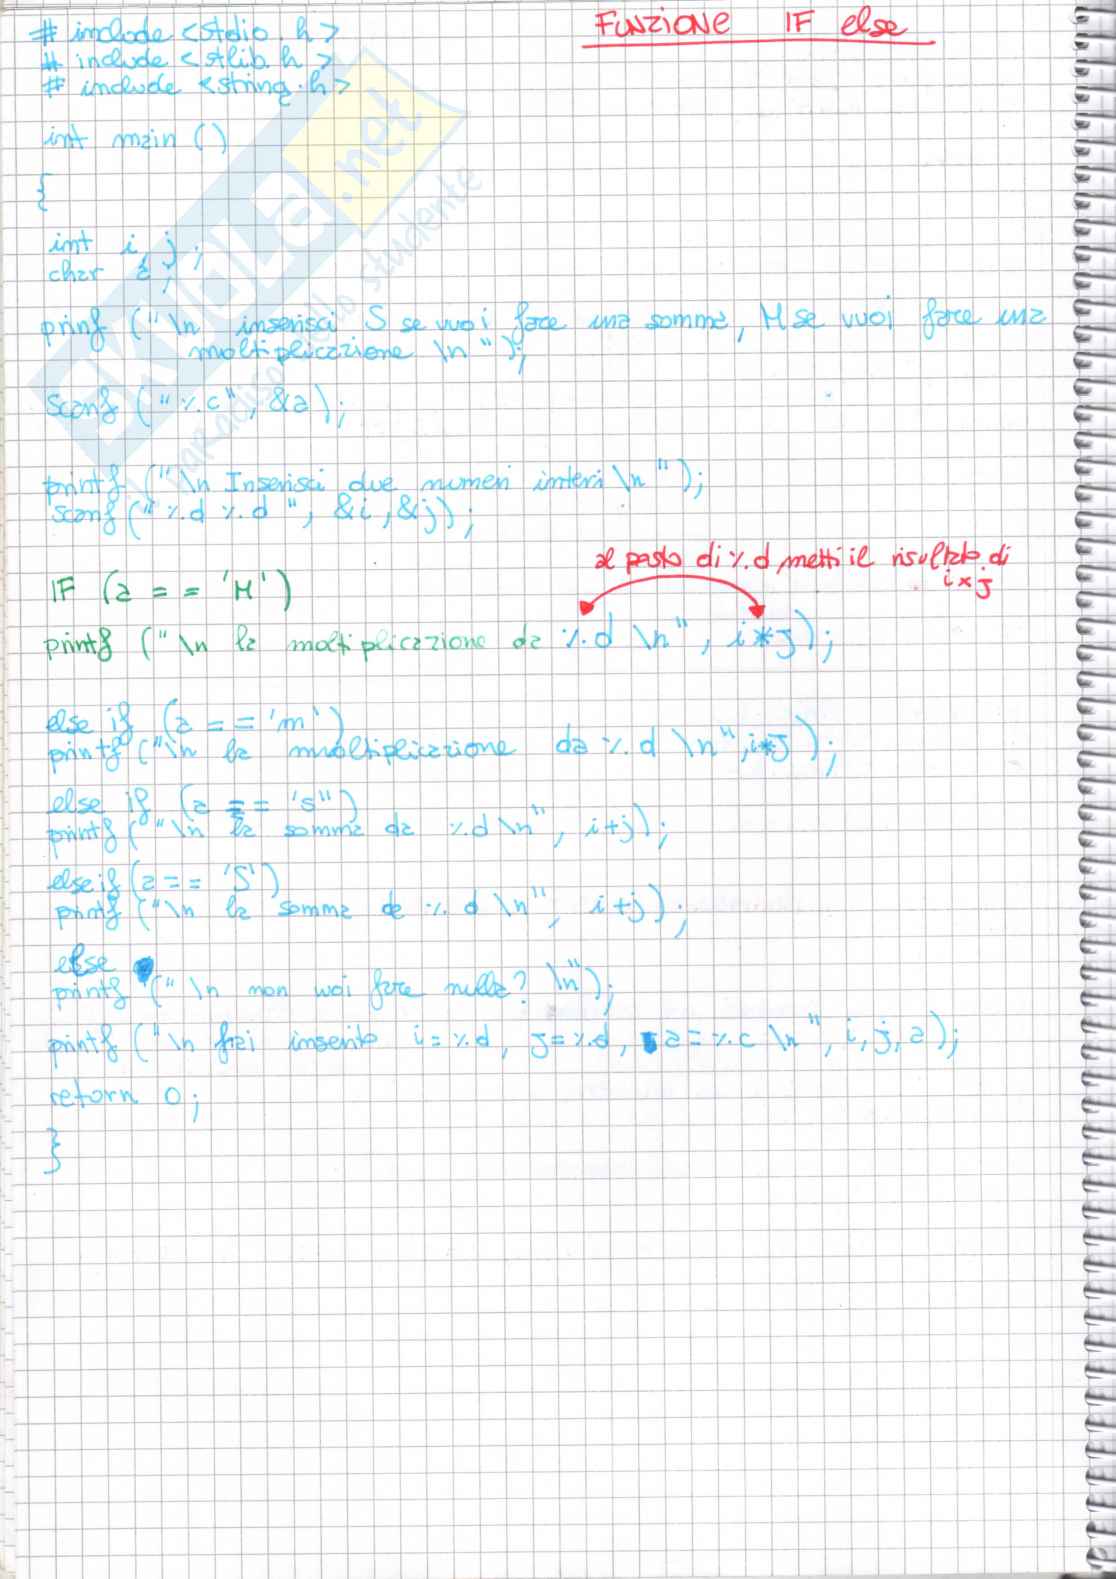 FUNZIONE IF else
# include <stdio.h>
# include <stlib.h>
# include <string.h>
int main ()
{
int i, j;
char a;
prinf ("\n inserisci S se vuoi fare una somma, M se vuoi fare una
moltiplicazione \n");
scanf ("%c", &a);
printf ("\n Inserisci due numeri interi \n");
scanf ("%d %d", &i, &j);
al posto di %d metti il risultato di
i x j
IF (a == 'M')
printf ("\n la moltiplicazione da %d \n", i*j);
else if (a == 'm')
printf ("\n la moltiplicazione da %d \n", i*j);
else if (a == 's")
printf ("\n la somma da %d \n", i+j);
else if (a == 'S')
printf ("\n la somma da %d \n", i+j);
else
printf ("\n non vuoi fare nulla? \n");
printf ("\n hai inserito i=%d, j=%d, a=%c \n", i, j, a);
return 0;
}
Skuola.net
il paradiso dello studente